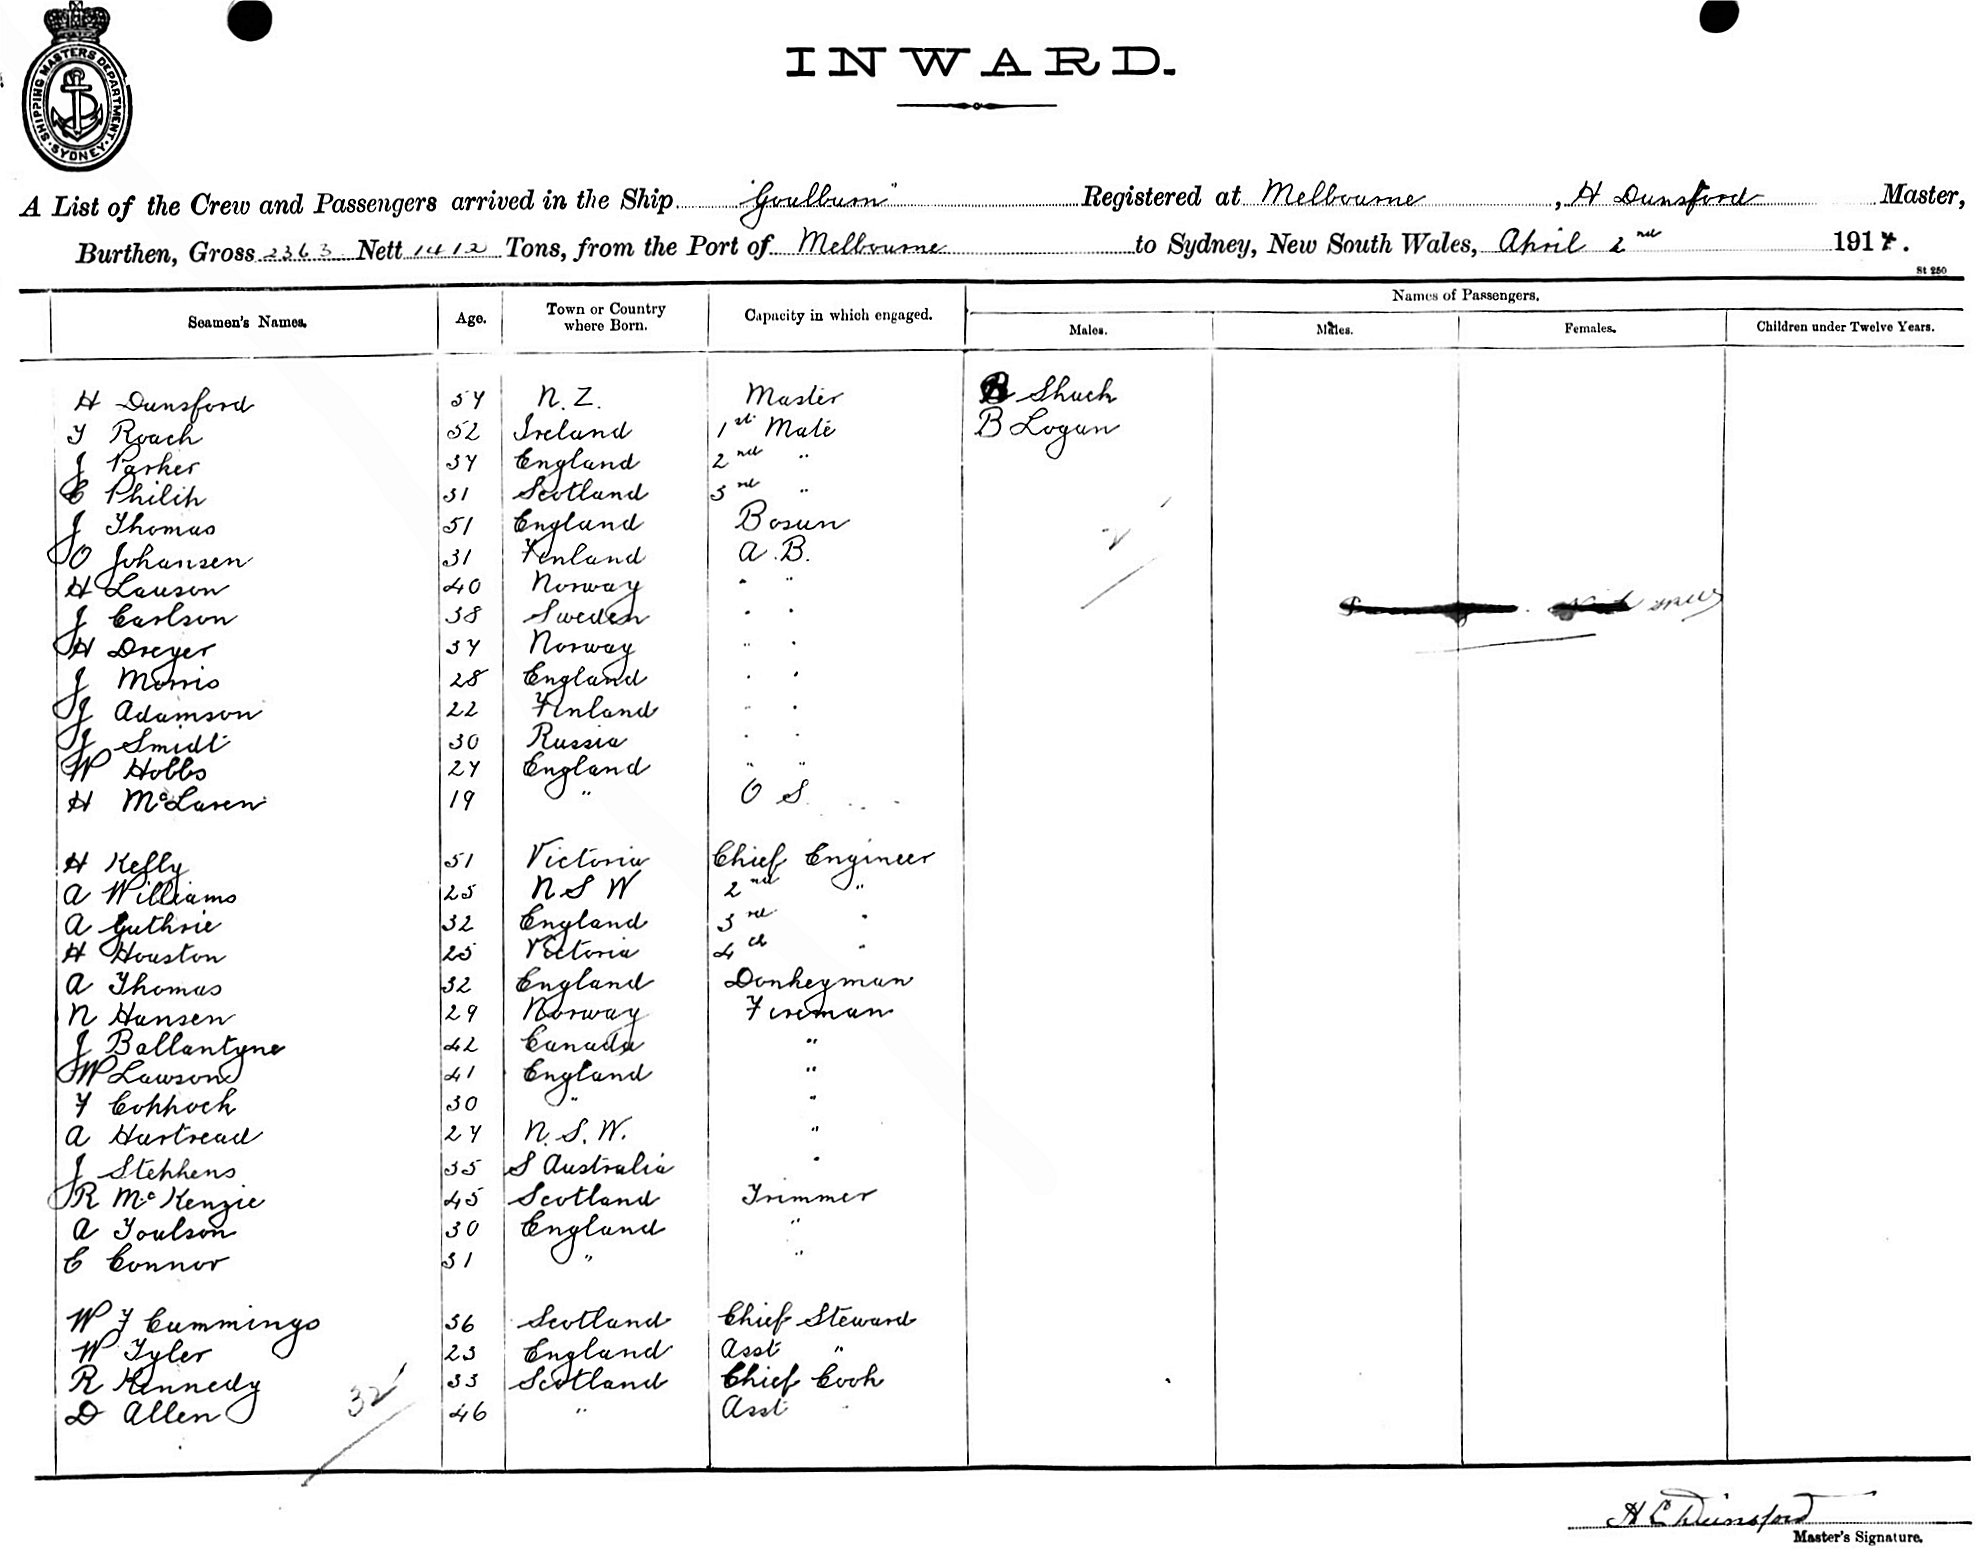 SHIPPING MASTERS DEPARTMENT · SYDNEY ·
INWARD.
A List of the Crew and Passengers arrived in the Ship "Goulburn" Registered at Melbourne, H Dunsford Master,
Burthen, Gross 2363 Nett 1412 Tons, from the Port of Melbourne to Sydney, New South Wales, April 2nd 1917.
St 250
Seamen's Names. Age. Town or Country where Born. Capacity in which engaged. Names of Passengers.
Males. Males. Females. Children under Twelve Years.
H Dunsford 57 N.Z. Master B Shuck
T Roach 52 Ireland 1st Mate B Logan
J Parker 37 England 2nd "
C Philip 31 Scotland 3rd "
J Thomas 51 England Bosun
O Johansen 31 Finland A.B.
H Lauson 40 Norway " "
J Carlson 38 Sweden " "
H Dreyer 37 Norway " "
J Morris 28 England " "
J Adamson 22 Finland " "
J Smidt 30 Russia " "
W Hobbs 27 England " "
H McLaren 19 " O S
H Kelly 51 Victoria Chief Engineer
A Williams 25 N S W 2nd "
A Guthrie 32 England 3rd "
H Houston 25 Victoria 4th "
A Thomas 32 England Donkeyman
N Hansen 29 Norway Fireman
J Ballantyne 42 Canada "
W Lawson 41 England "
F Coppock 30 " "
A Hartread 27 N.S.W. "
J Stephens 35 S Australia "
R McKenzie 45 Scotland Trimmer
A Toulson 30 England "
C Connor 31 " "
W F Cummings 36 Scotland Chief Steward
W Tyler 23 England Asst "
R Kennedy 33 Scotland Chief Cook
D Allen 46 " Asst "
32
H C Dunsford
Master's Signature.